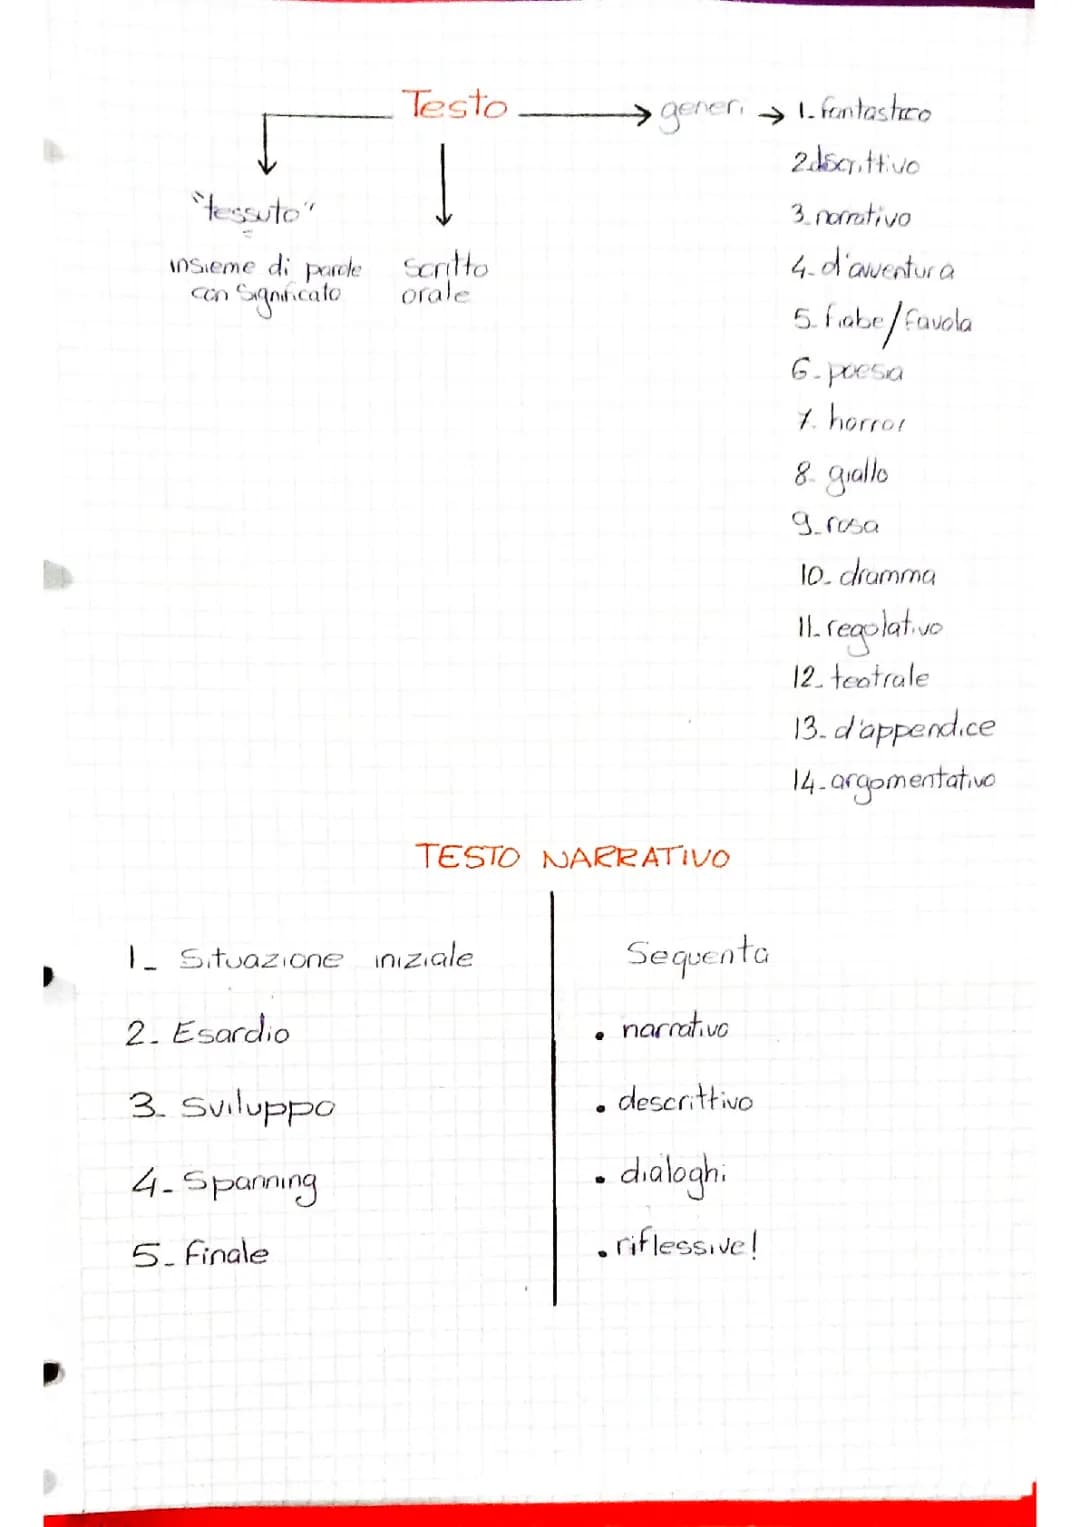 Testo → generi → 1. fantastico
2. dscrittivo
3. narrativo
4. d'avventura
5. fiabe/favola
6. poesia
7. horror
8. giallo
9. rosa
10. dramma
11. regolativo
12. teatrale
13. d'appendice
14. argomentativo
"tessuto"
insieme di parole
con significato
scritto
orale
TESTO NARRATIVO
1_ Situazione iniziale
2. Esardio
3. Sviluppo
4. Spanning
5. finale
Sequenta
• narrativo
• descrittivo
• dialoghi
• riflessive!